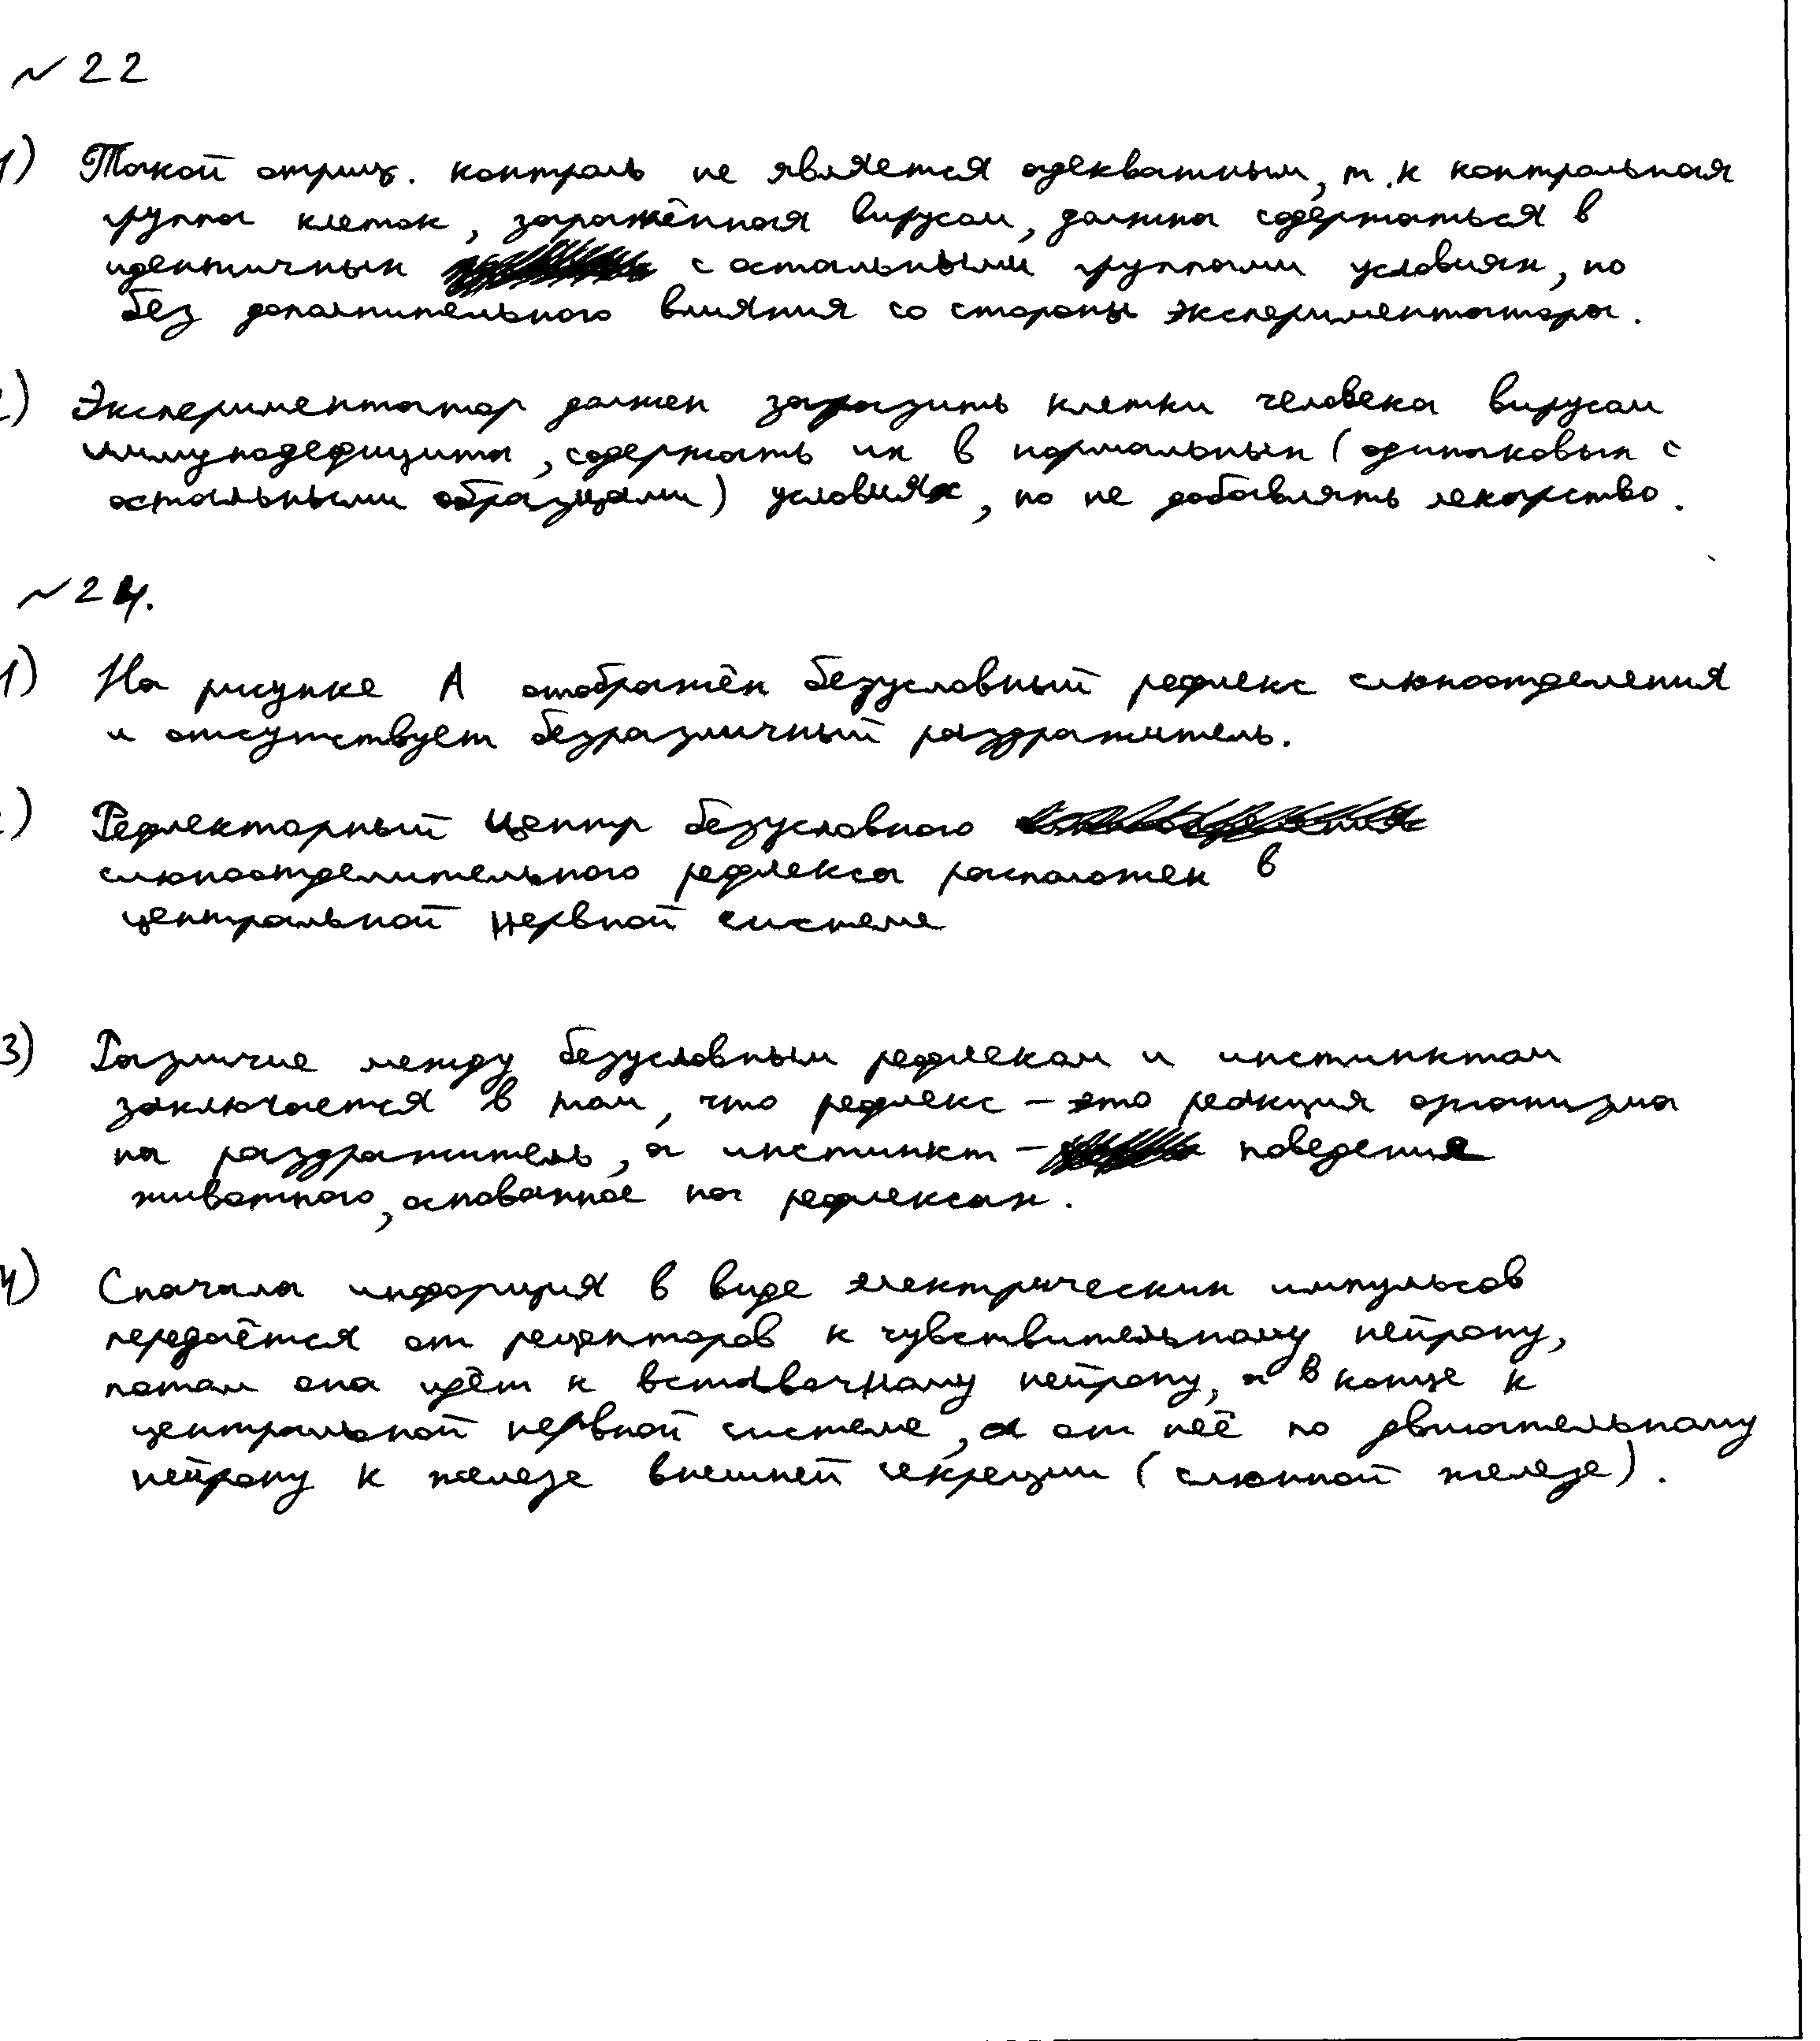 № 22
1) Такой отриц. контроль не является адекватным, т.к контрольная
группа клеток, заражённая вирусом, должна содержаться в
идентичных с остальными группами условиях, но
без дополнительного влияния со стороны экспериментатора.
2) Экспериментатор должен заразить клетки человека вирусом
иммунодефицита, содержать их в нормальных (одинаковых с
остальными образцами) условиях, но не добавлять лекарство.
№ 24.
1) На рисунке А отображён безусловный рефлекс слюноотделения
и отсутствует безразличный раздражитель.
2) Рефлекторный центр безусловного
слюноотделительного рефлекса расположен в
центральной нервной системе
3) Различие между безусловным рефлеком и инстинктом
заключается в том, что рефлекс – это реакция организма
на раздражитель, а инстинкт – поведение
животного, основанное на рефлексах.
4) Сначала информция в виде электрических импульсов
передаётся от рецепторов к чувствительному нейрону,
потом она идёт к вставочному нейрону, а в конце к
центральной нервной системе, а от неё по двигательному
нейрону к железе внешней секреции (слюнной железе).